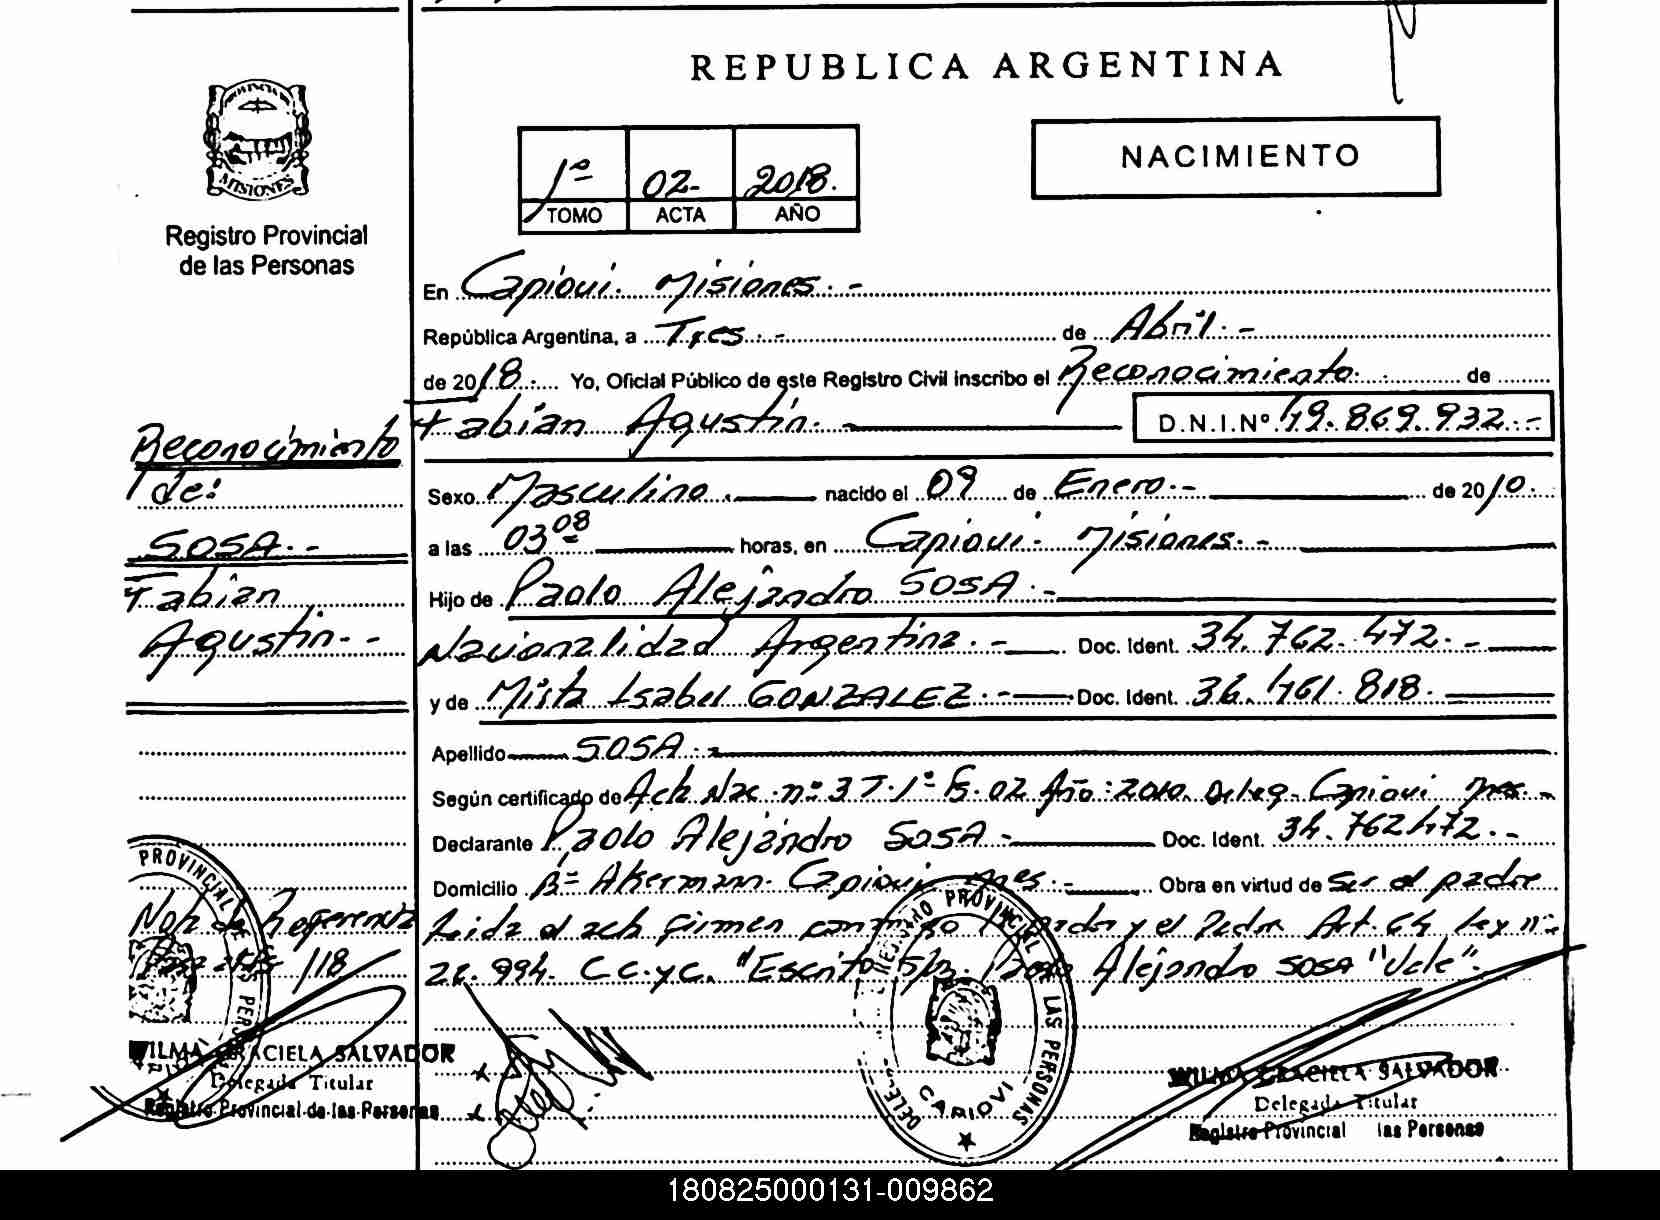 REPUBLICA ARGENTINA
PROVINCIA DE
MISIONES
Registro Provincial
de las Personas
1º 02- 2018.
TOMO ACTA AÑO
NACIMIENTO
En Capiovi. Misiones. -
República Argentina, a Tres. - de Abril. -
de 2018. Yo, Oficial Público de este Registro Civil inscribo el Reconocimiento. de
Fabian Agustin. D.N.I.Nº 49.869.932. -
Sexo Masculino. nacido el 09 de Enero. - de 2010.
a las 03 08 horas, en Capiovi - Misiones. -
Hijo de Paolo Alejandro SOSA. -
Nacionalidad Argentina. - Doc. Ident. 34.762.472. -
y de Mirta Isabel GONZALEZ. - Doc. Ident. 36.461.818.
Apellido SOSA. -
Según certificado de Acta Nac. nº 37. 1º Año: 2010. Deleg. Capiovi -
Declarante Paolo Alejandro SOSA. - Doc. Ident. 34.762.472. -
Domicilio Bº Akermann. Capiovi - Obra en virtud de Ser el padre
Leida el acta firman y el Padre Art. 64 Ley nº
26.994. C.C.y C. "Escrito S/R. Paolo Alejandro SOSA "Vale".
Reconocimiento
de:
SOSA. -
Fabian
Agustin. -
Not de Referencia
118
PROVINCIAL DE LAS PERSONAS
WILMA GRACIELA SALVADOR
Delegada Titular
Registro Provincial de las Personas
REGISTRO PROVINCIAL DE LAS PERSONAS
CAPIOVI
WILMA GRACIELA SALVADOR
Delegada Titular
Registro Provincial las Personas
180825000131-009862